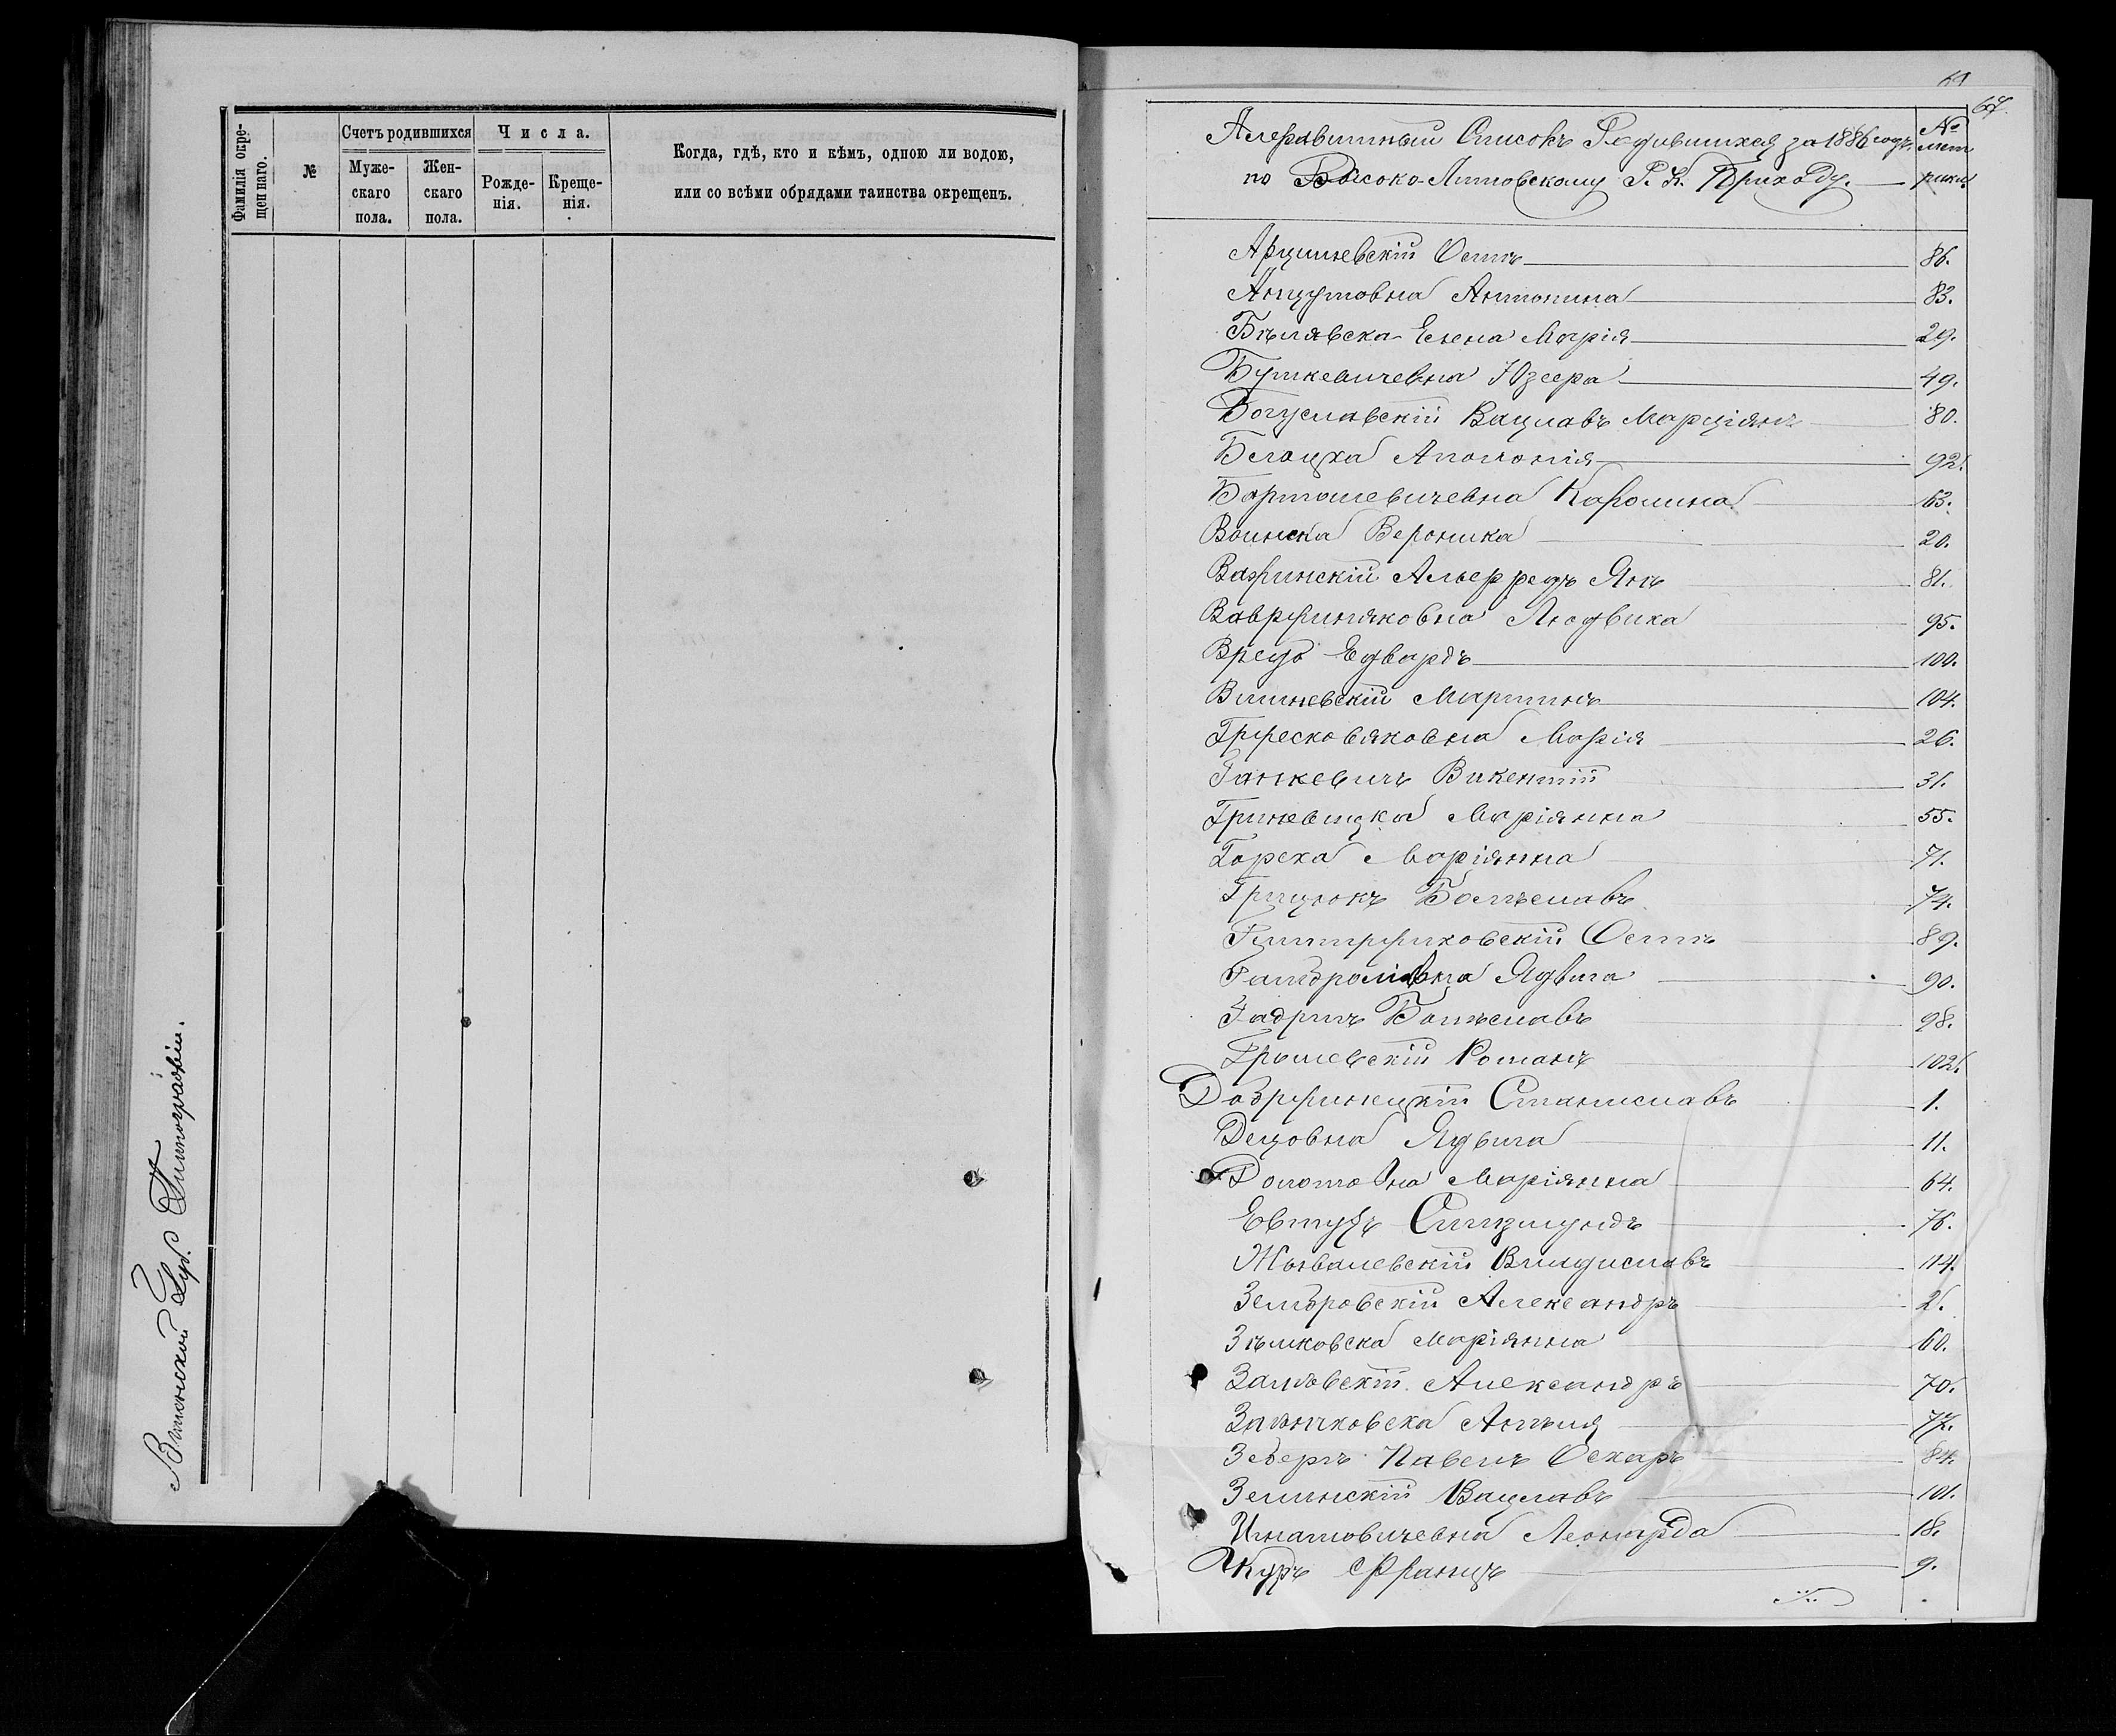 Фамилія окре-
щеннаго.
№
Счетъ родившихся
Муже-
скаго
пола.
Жен-
скаго
пола.
Числа.
Рожде-
нія.
Креще-
нія.
Когда, гдѣ, кто и кѣмъ, одною ли водою,
или со всѣми обрядами таинства окрещенъ.
Виленской Губ. Типографіи.
67.
Алфавитный Списокъ Родившихся за 1886 годъ
по Высоко-Литовскому Р. К. Приходу.
№
мет
рики
Арцишевскій Осипъ 86.
Анцутовна Антонина 83.
Бѣлявска Елена Марія 29.
Буткевичевна Юзефа 49.
Богуславскій Вацлавъ Марціянъ 80.
Блоцка Аполонія 92.
Бартошевичевна Каролина 63.
Воинска Вероника 20.
Альфредъ Янъ 81.
Ваврфиняковна Людвика 95.
Едвардъ 100.
Вишневскій Мартинъ 104.
Грресковяковна Марія 26.
Ганкевичъ Викентій 31.
Гриневицка Маріянна 55.
Горска Маріянна 71.
Грицюкъ Болеславъ 74.
Осипъ 89.
Ядвига 90.
Болеславъ 98.
Грышевскій Романъ 102.
Станиславъ 1.
Децовна Ядвига 11.
Маріянна 64.
Евтухъ Сигизмундъ 76.
Владиславъ 114.
Зембровскій Александръ 2.
Маріянна 60.
Залѣвскій Александръ 70.
77.
Павелъ Оскаръ 84.
Зелинскій Вацлавъ 101.
Игнатовичевна Леонарда 18.
Францъ 9.